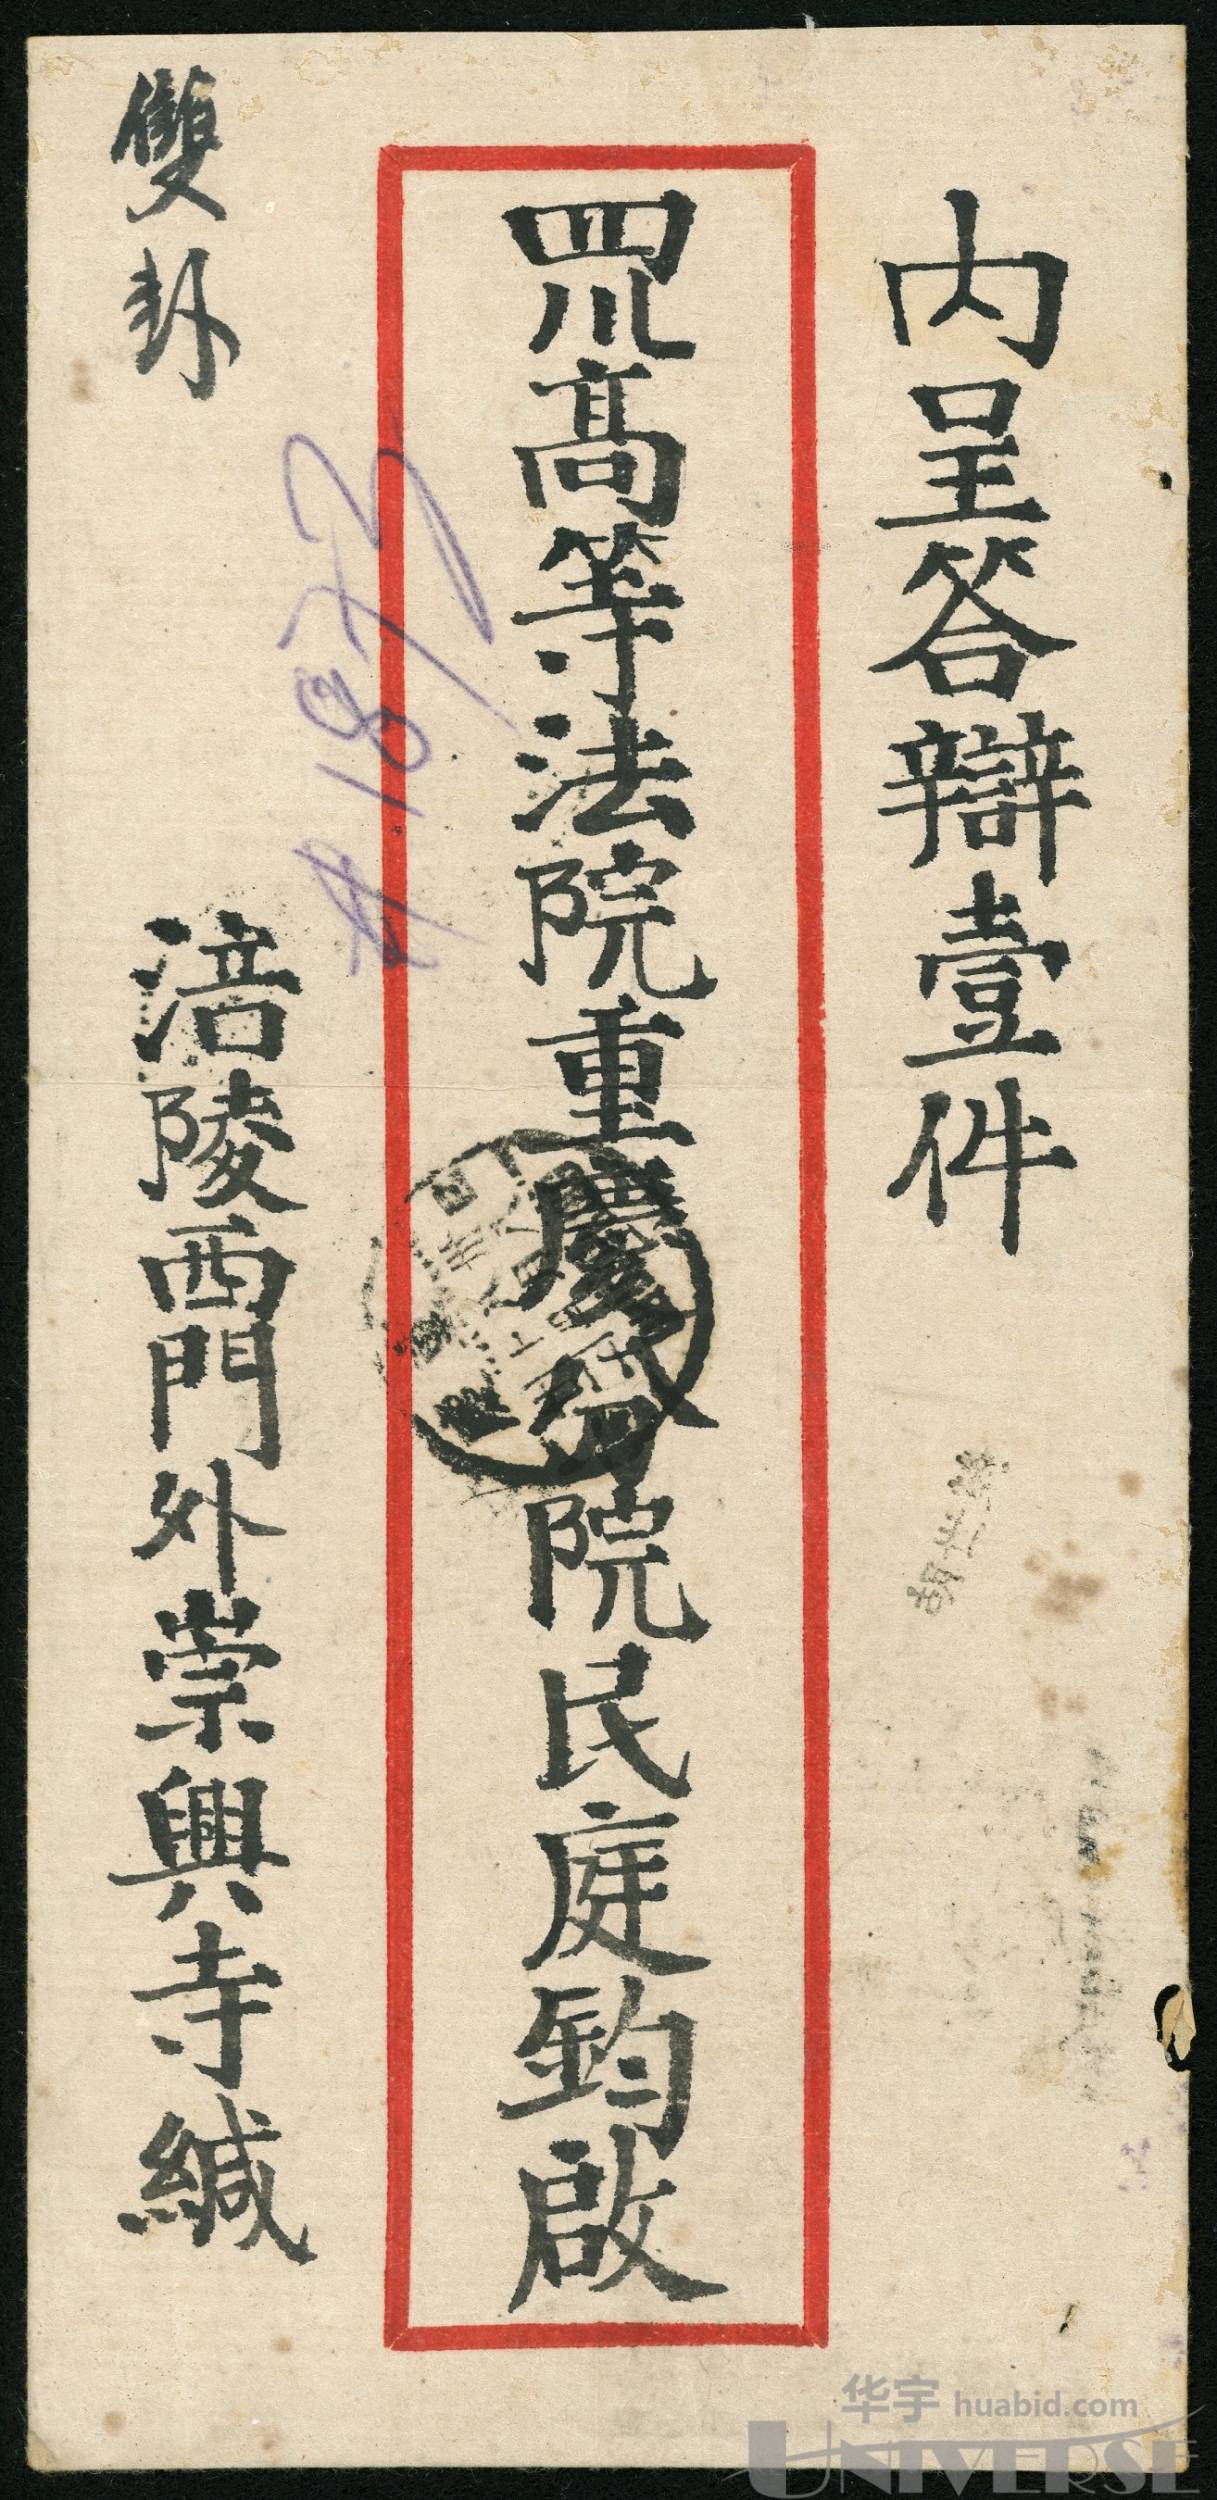 內呈答辯壹件
四川高等法院重慶分院民庭鈞啟
雙掛
涪陵西門外崇興寺緘
华宇 huabid.com
UNIVERSE